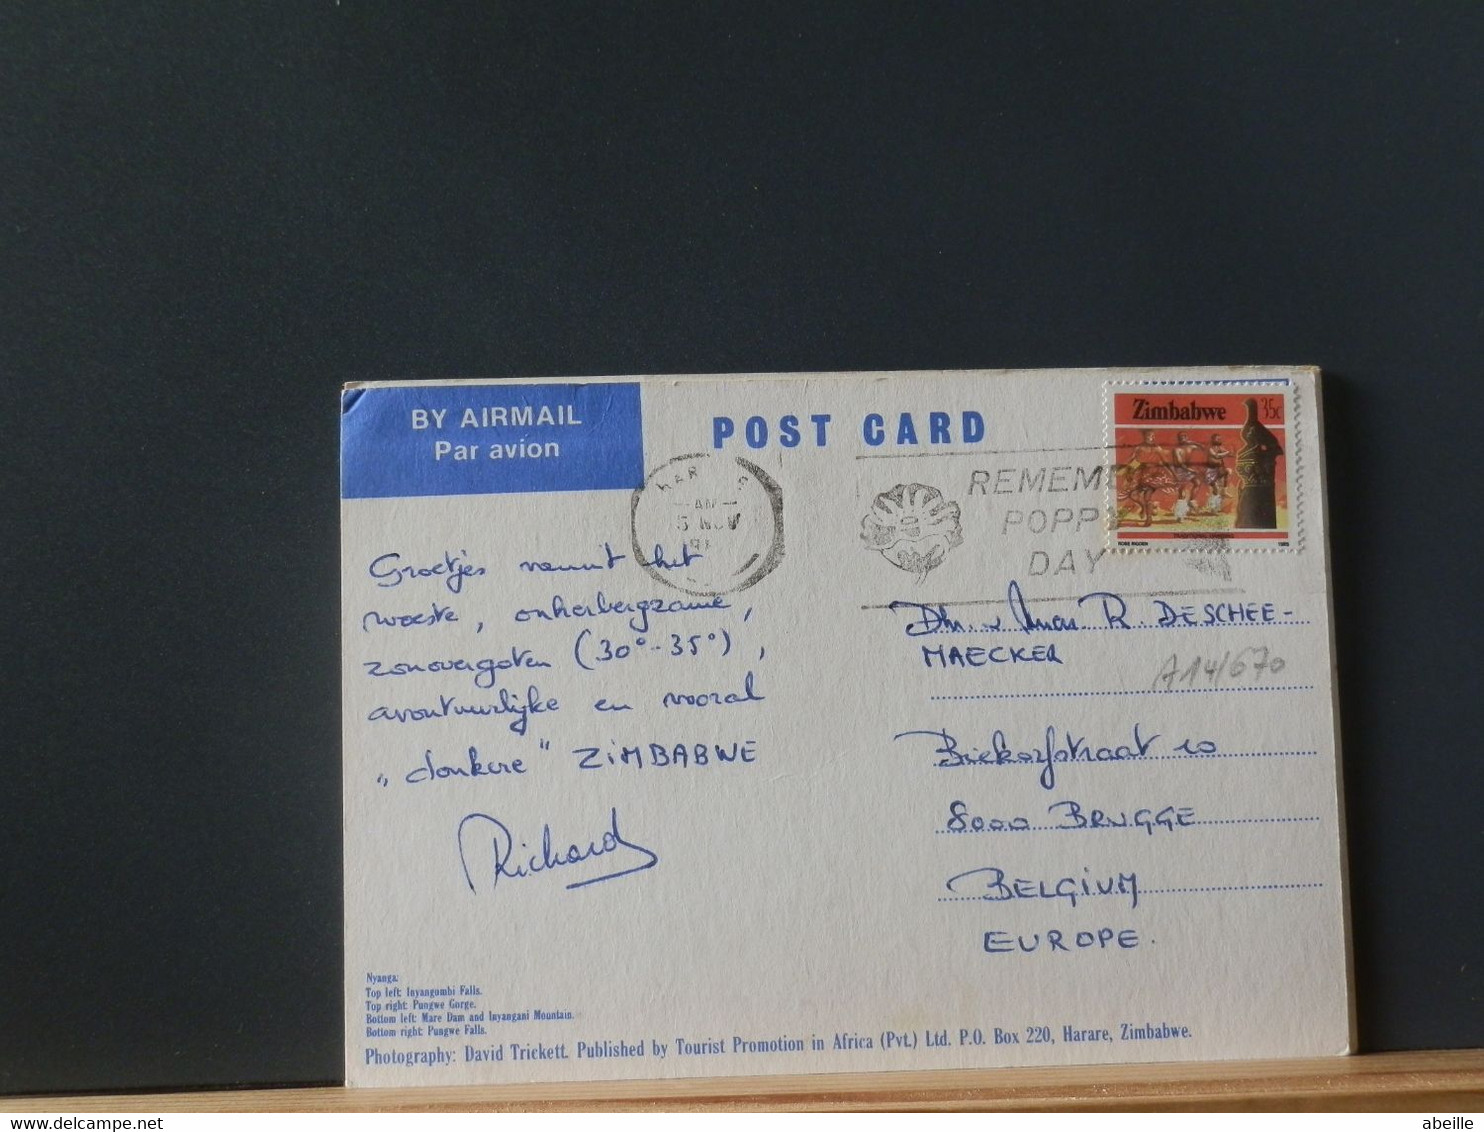 BY AIRMAIL
Par avion
POST CARD
Zimbabwe 35c
AM
5 NOV
REMEM
POPP
DAY
1985
Groetjes vanuit het
woeste, onherbergzame,
zonovergoten (30°-35°),
avontuurlijke en vooral
„donkere" ZIMBABWE
Richard
Dhr. & Mevr R. DESCHEE-
MAECKER
A14/670
Biekorfstraat 10
8000 BRUGGE
BELGIUM
EUROPE.
Nyanga:
Top left: Inyangombi Falls.
Top right: Pungwe Gorge.
Bottom left: Mare Dam and Inyangani Mountain.
Bottom right: Pungwe Falls.
Photography: David Trickett. Published by Tourist Promotion in Africa (Pvt.) Ltd. P.O. Box 220, Harare, Zimbabwe.
abeille